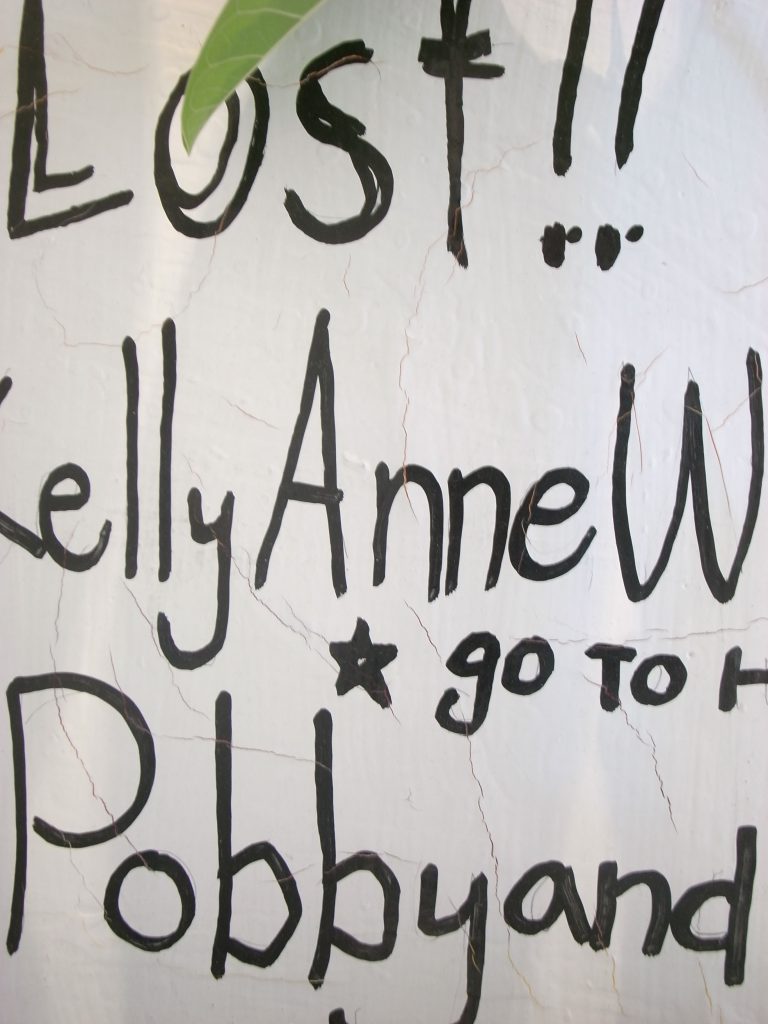 Lost!!
Kelly Anne W
★ go To H
Pobby and